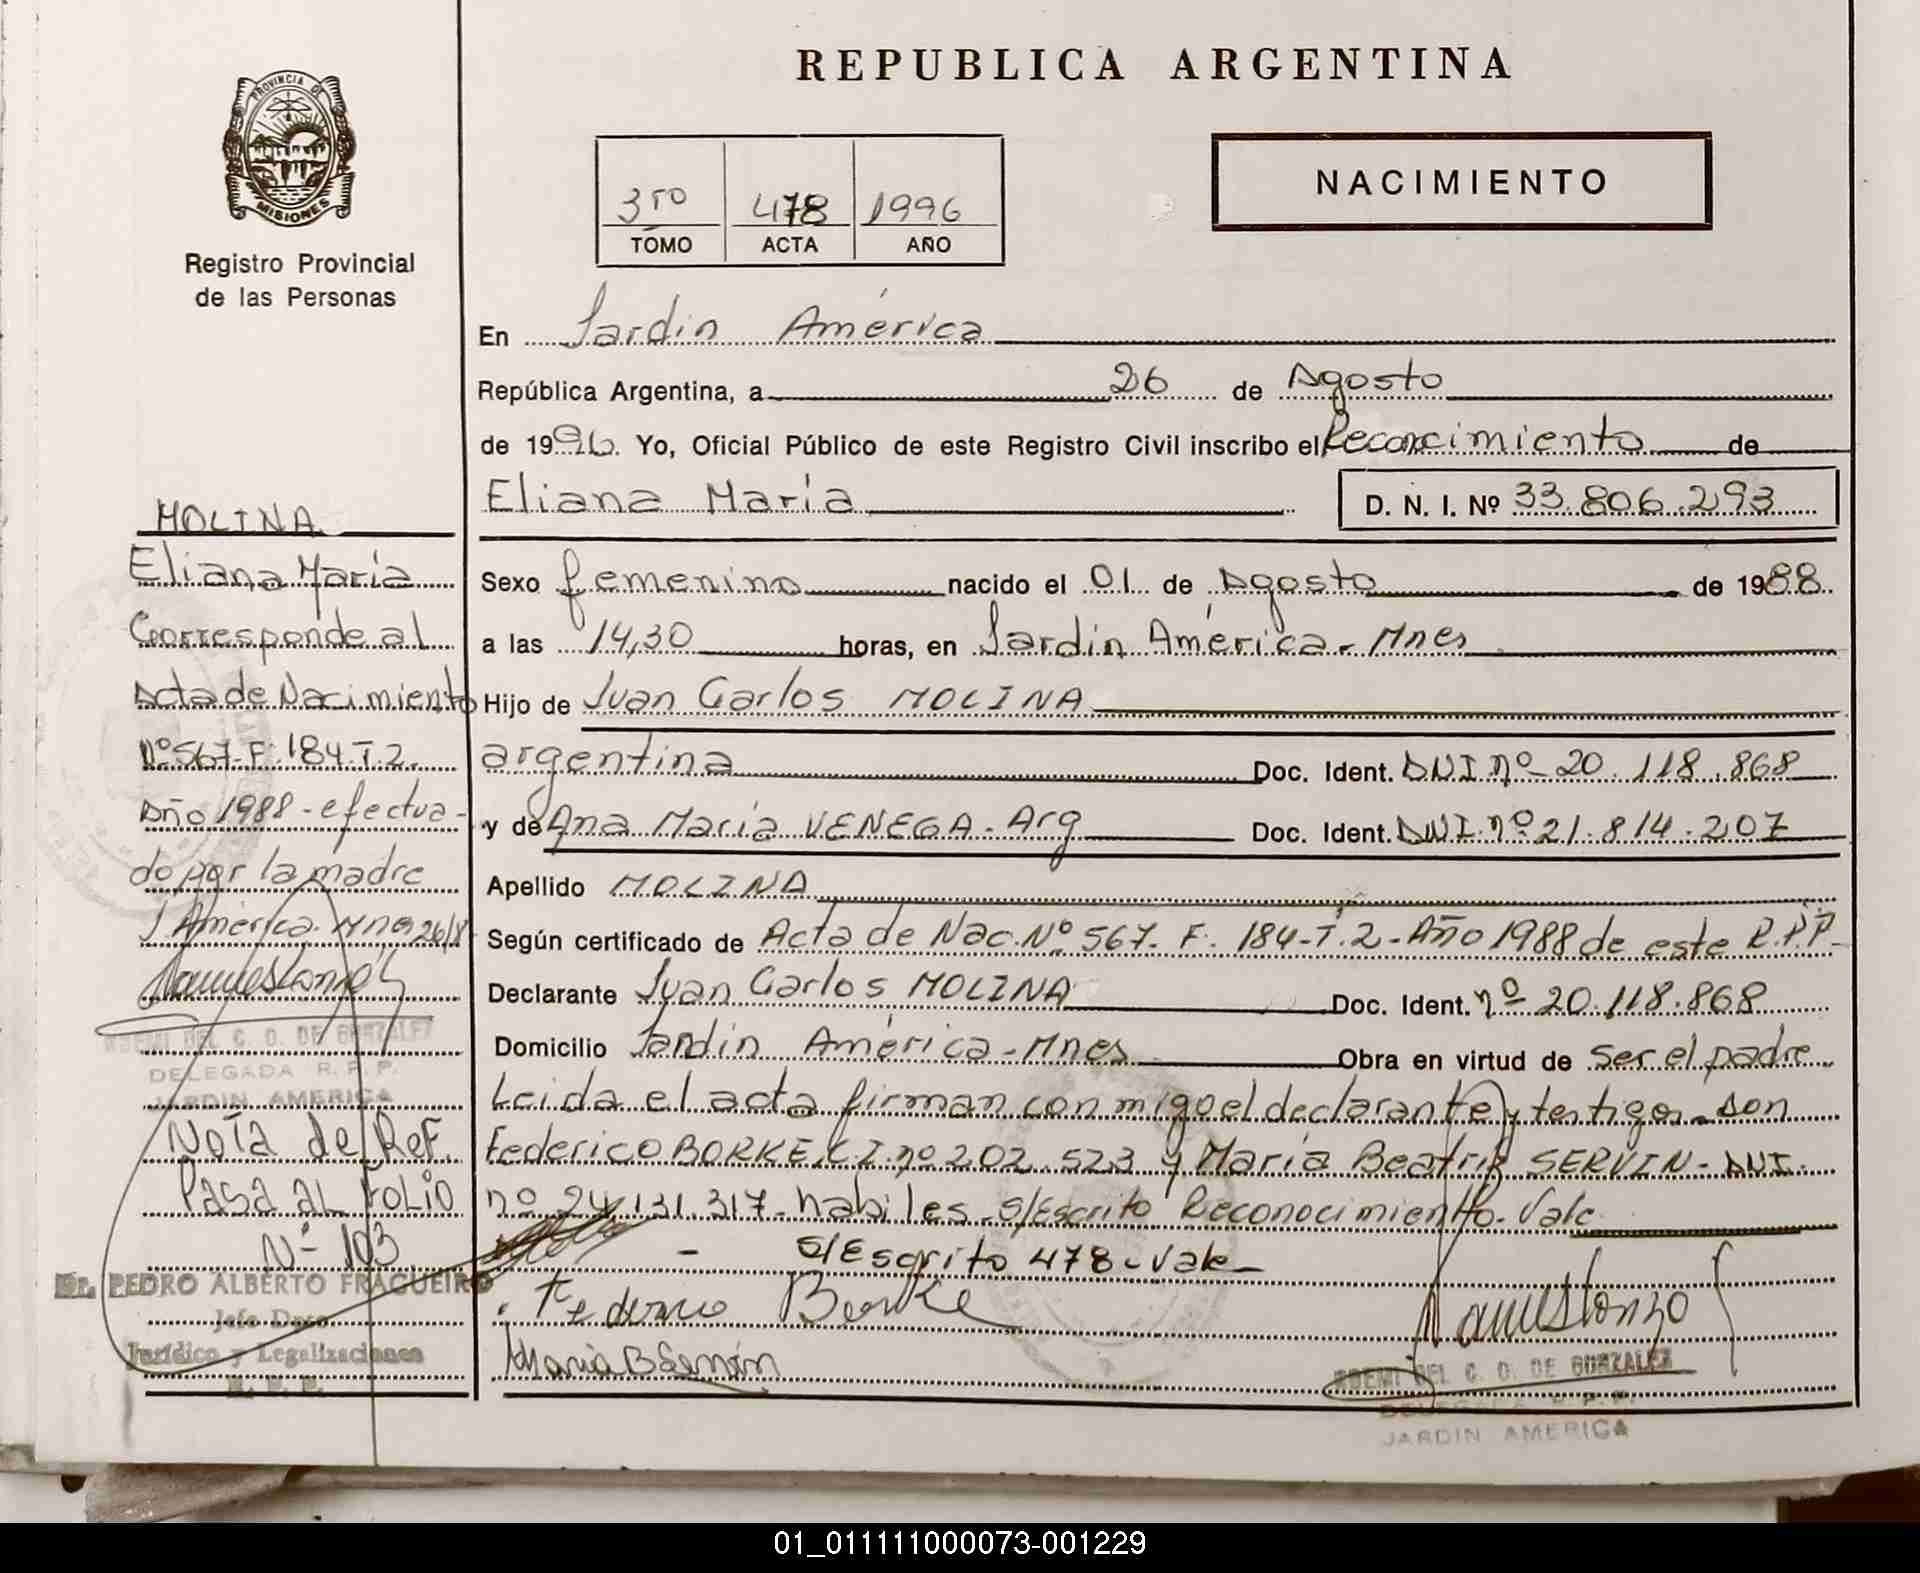 REPUBLICA ARGENTINA
PROVINCIA DE
MISIONES
Registro Provincial
de las Personas
3ro 478 1996
TOMO ACTA AÑO
NACIMIENTO
En Jardin América
República Argentina, a 26 de Agosto
de 1996. Yo, Oficial Público de este Registro Civil inscribo el Reconocimiento de
Eliana María D. N. I. Nº 33.806.293
Sexo femenino nacido el 01 de Agosto de 1988
a las 14,30 horas, en Jardin América - Mnes
Hijo de Juan Carlos MOLINA
argentina Doc. Ident. DNI nº 20.118.868
y de Ana María VENEGA - Arg Doc. Ident. DNI. nº 21.814.207
Apellido MOLINA
Según certificado de Acta de Nac. Nº 567- F. 184-T.2-Año 1988 de este R.P.P-
Declarante Juan Carlos MOLINA Doc. Ident. nº 20.118.868
Domicilio Jardin América - Mnes Obra en virtud de ser el padre
Leida el acta firman con migo el declarante y testigos - son
Federico BORKE C.I. nº 202.523 y María Beatriz SERVIN - DNI.
nº 24.131.317- habiles - s/Escrito Reconocimiento. Vale
- s/Escrito 478 - Vale -
Federico Borke
DEL C. O. DE GONZALEZ
DELEGADA R. P. P.
JARDIN AMERICA
MOLINA
Eliana María
Corresponde al
Acta de Nacimiento
Nº 567-F: 184-T.2.
Año 1988 - efectua-
do por la madre
J América. Mnes 26/8
DEL C. O. DE GONZALEZ
DELEGADA R. P. P.
JARDIN AMERICA
NOTA de Ref.
PASA AL FOLIO
Nº 103
Dr. PEDRO ALBERTO FRAGUEIRO
Jefe Dpto.
Jurídico y Legalizaciones
R. P. P.
01_011111000073-001229